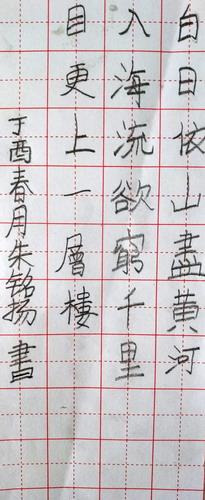 白日依山盡黄河
入海流欲窮千里
目更上一層樓
丁酉春月朱铭扬書